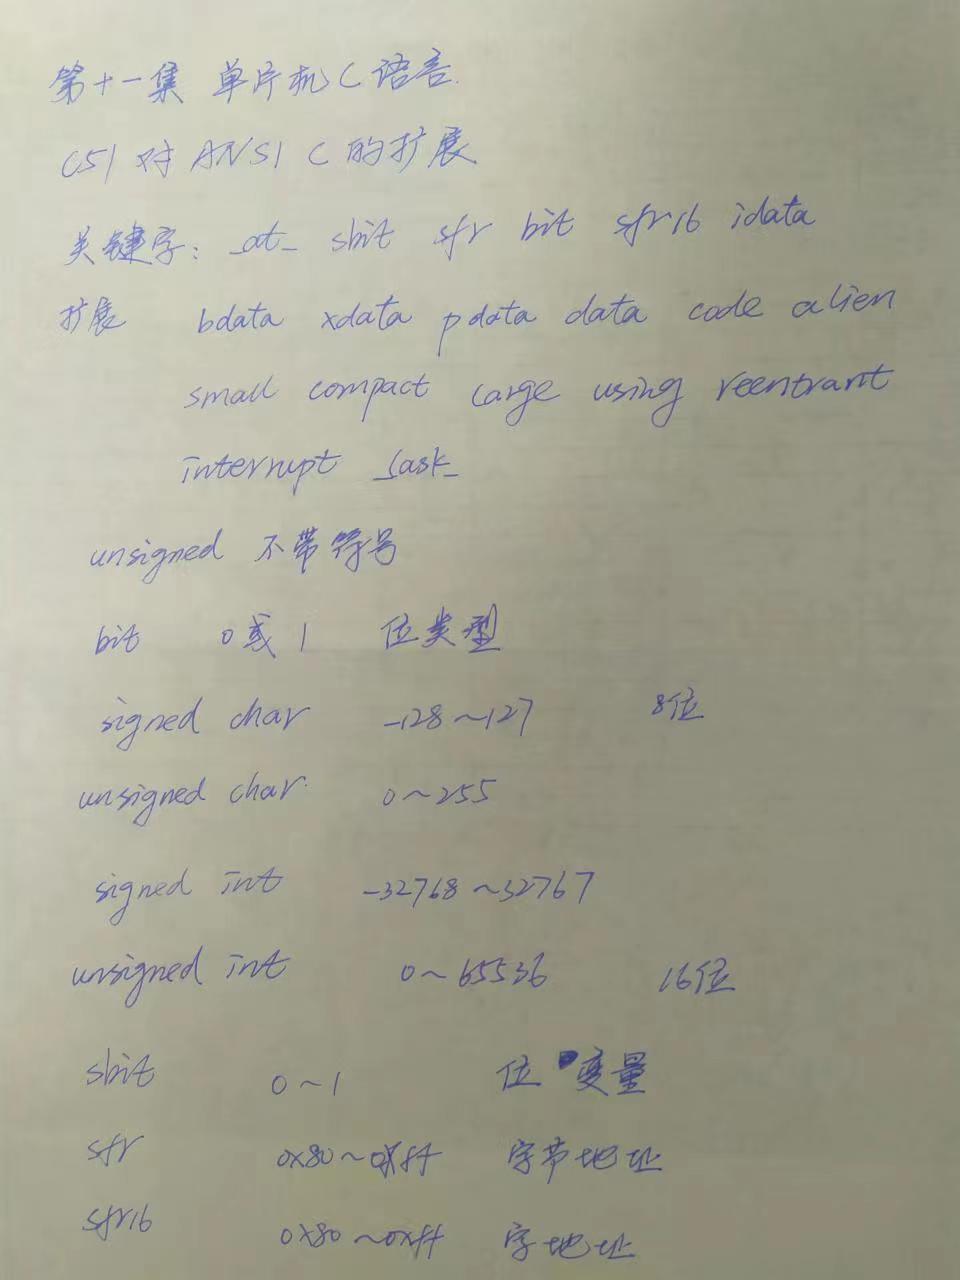 第十一集 单片机C语言.
C51对ANSI C的扩展
关键字: _at_ sbit sfr bit sfr16 idata
扩展 bdata xdata pdata data code alien
small compact large using reentrant
interrupt _task_
unsigned 不带符号
bit 0或1 位类型
signed char -128~127 8位
unsigned char 0~255
signed int -32768~32767
unsigned int 0~65536 16位
sbit 0~1 位变量
sfr 0x80~0xff 字节地址
sfr16 0x80~0xff 字地址